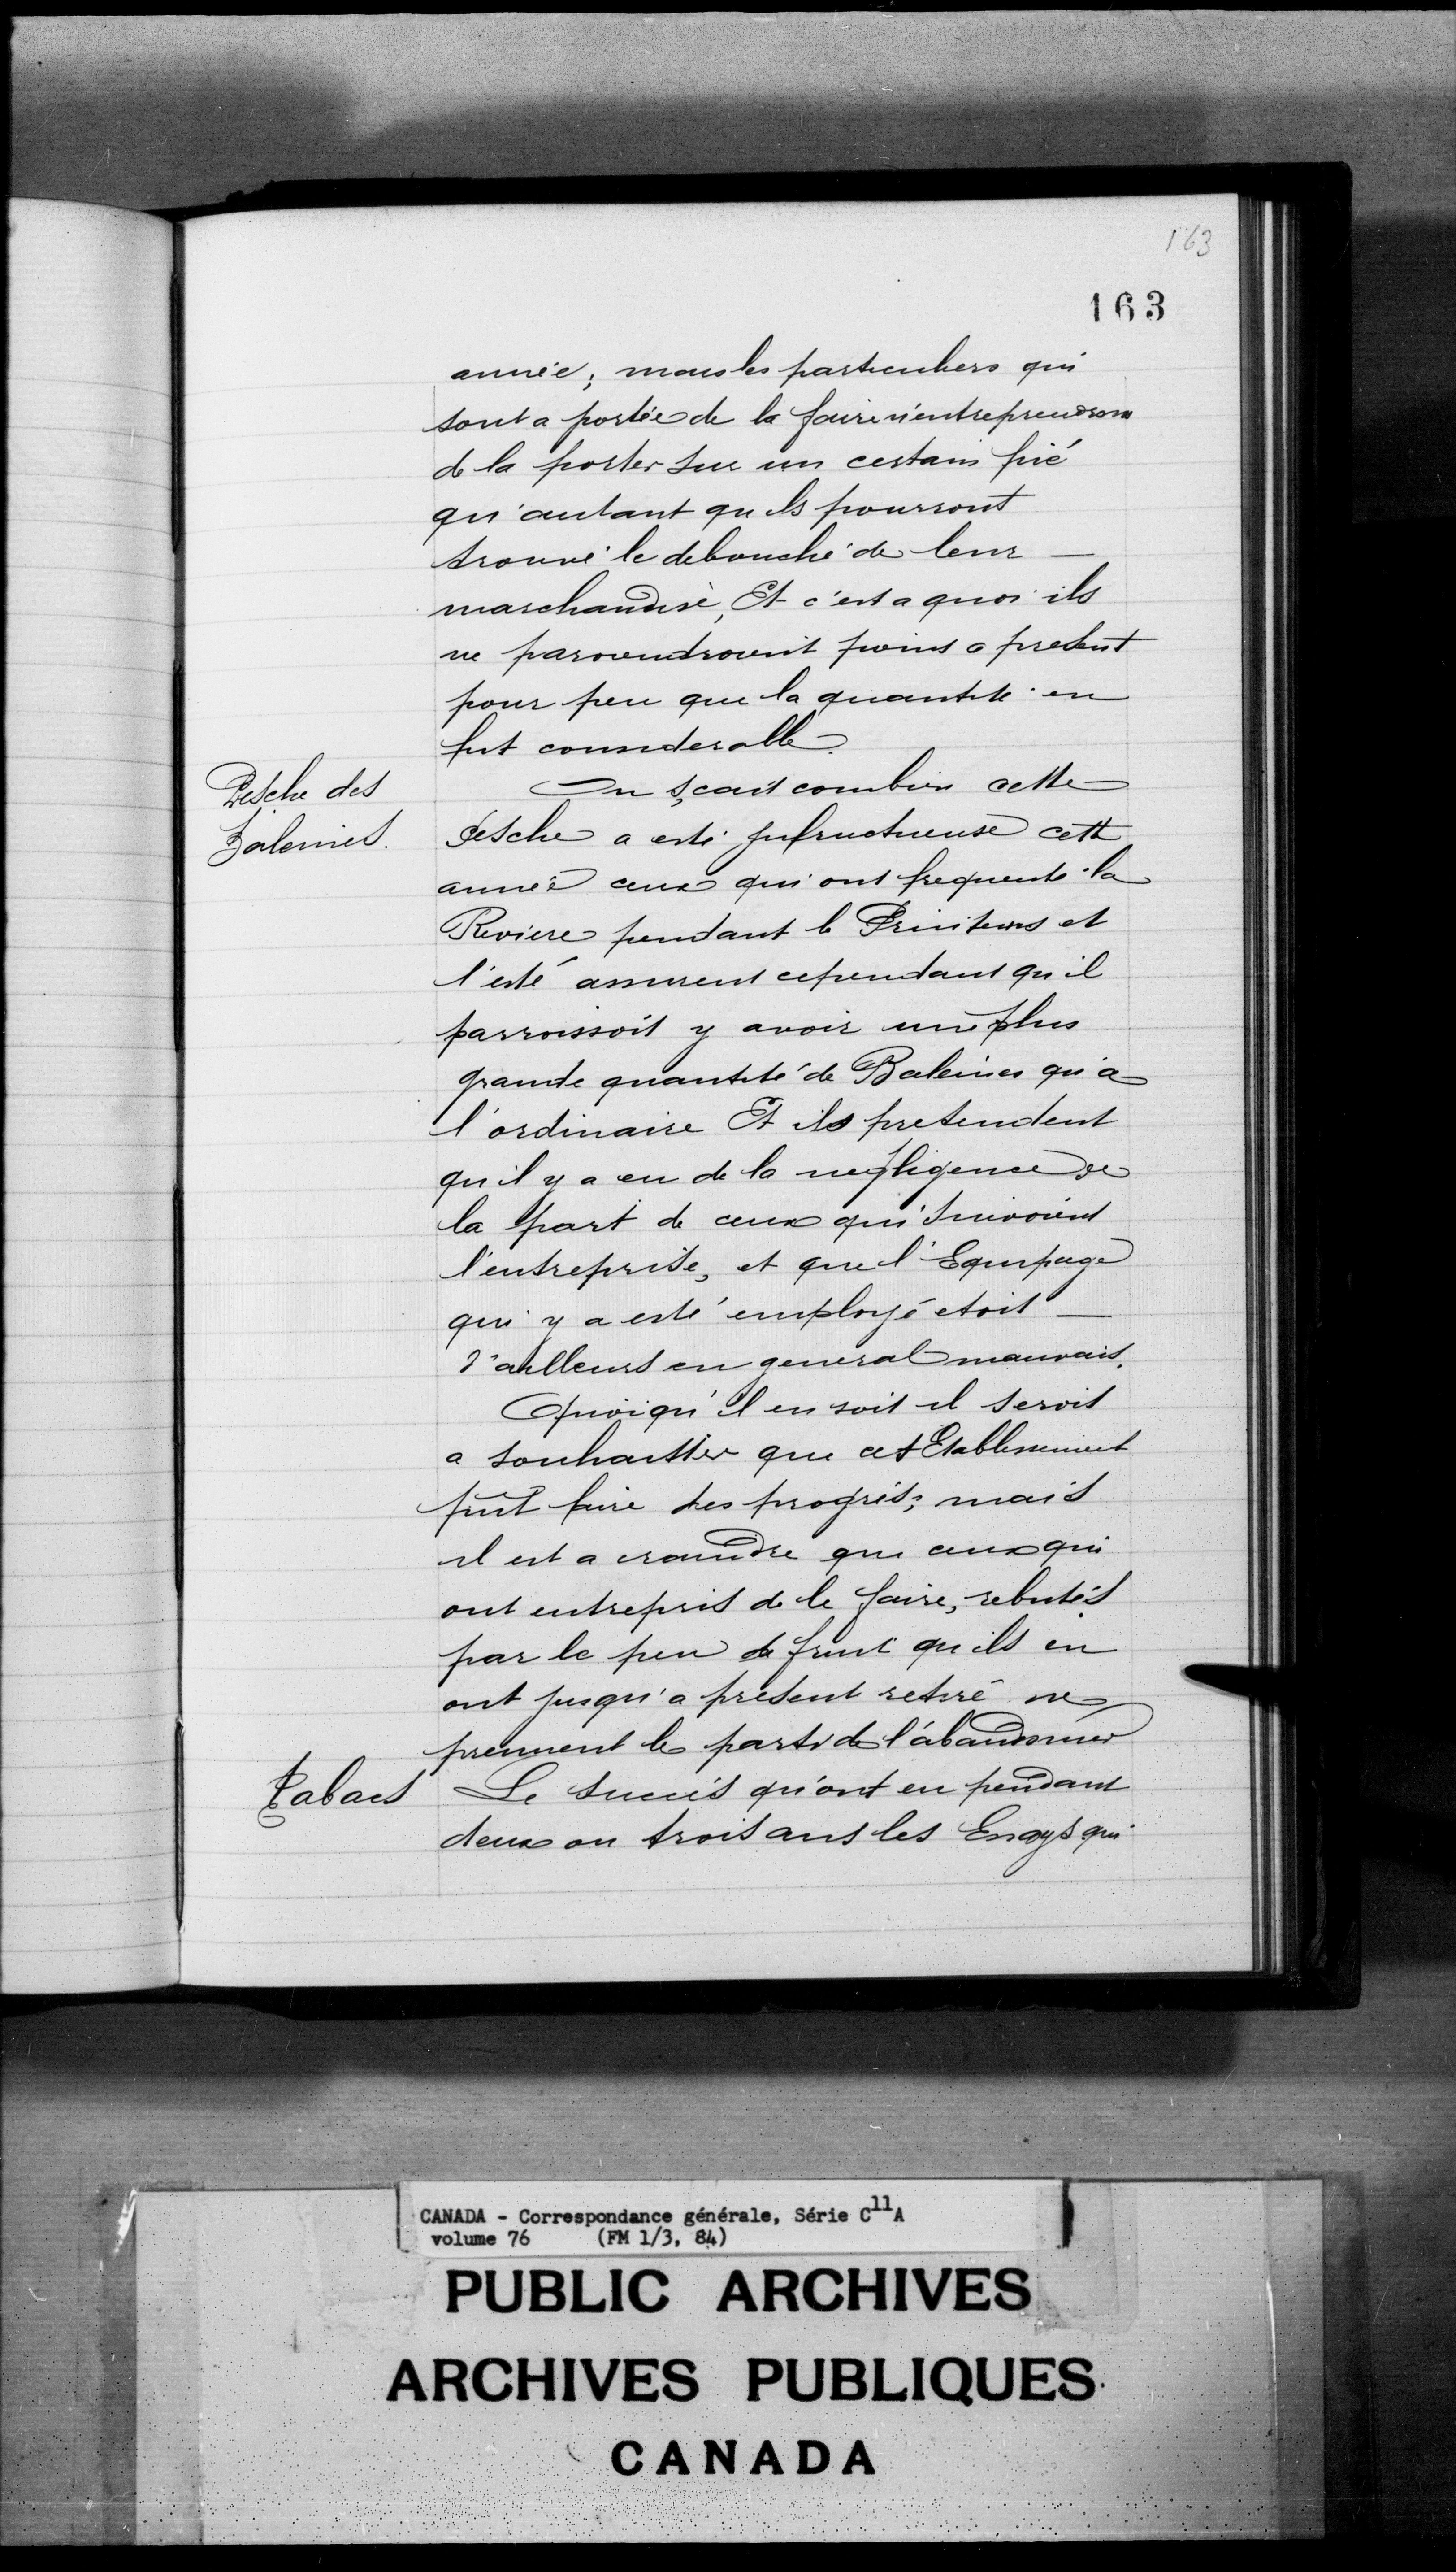 163
163
année; mais les particuliers qui
sont a portée de la faire n'entreprendront
de la porter sur un certain pié
qu'autant qu'ils pourront
trouvé le debouché de leur —
marchandise, Et c'est a quoi ils
ne parviendroient point a present
pour peu que la quantité en
fut considerable.
Pesche des
Balenies.
On sçait combien cette
Pesche a esté infructueuse cette
année ceux qui ont frequenté la
Riviere pendant le Printems et
l'esté assurent cependant qu'il
parroissoit y avoir une plus
grande quantité de Baleines qu'a
l'ordinaire Et ils pretendent
qu'il y a eu de la negligence de
la part de ceux qui suivoient
l'entreprise, et que l'Equipage
qui y a esté employé etoit —
d'ailleurs en general mauvais.
Quoiqu'il en soit il seroit
a souhaitter que cet Etablissement
pût faire des progrés; mais
il est a craindre que ceux qui
ont entrepris de le faire, rebutés
par le peu de fruit qu'ils en
ont jusqu'a present retiré ne
prennent le parti de l'abandonner
Tabacs
Le succés qu'ont eu pendant
deux ou trois ans les Essays qui
CANADA - Correspondance générale, Série C11A
volume 76 (FM 1/3, 84)
PUBLIC ARCHIVES
ARCHIVES PUBLIQUES
CANADA